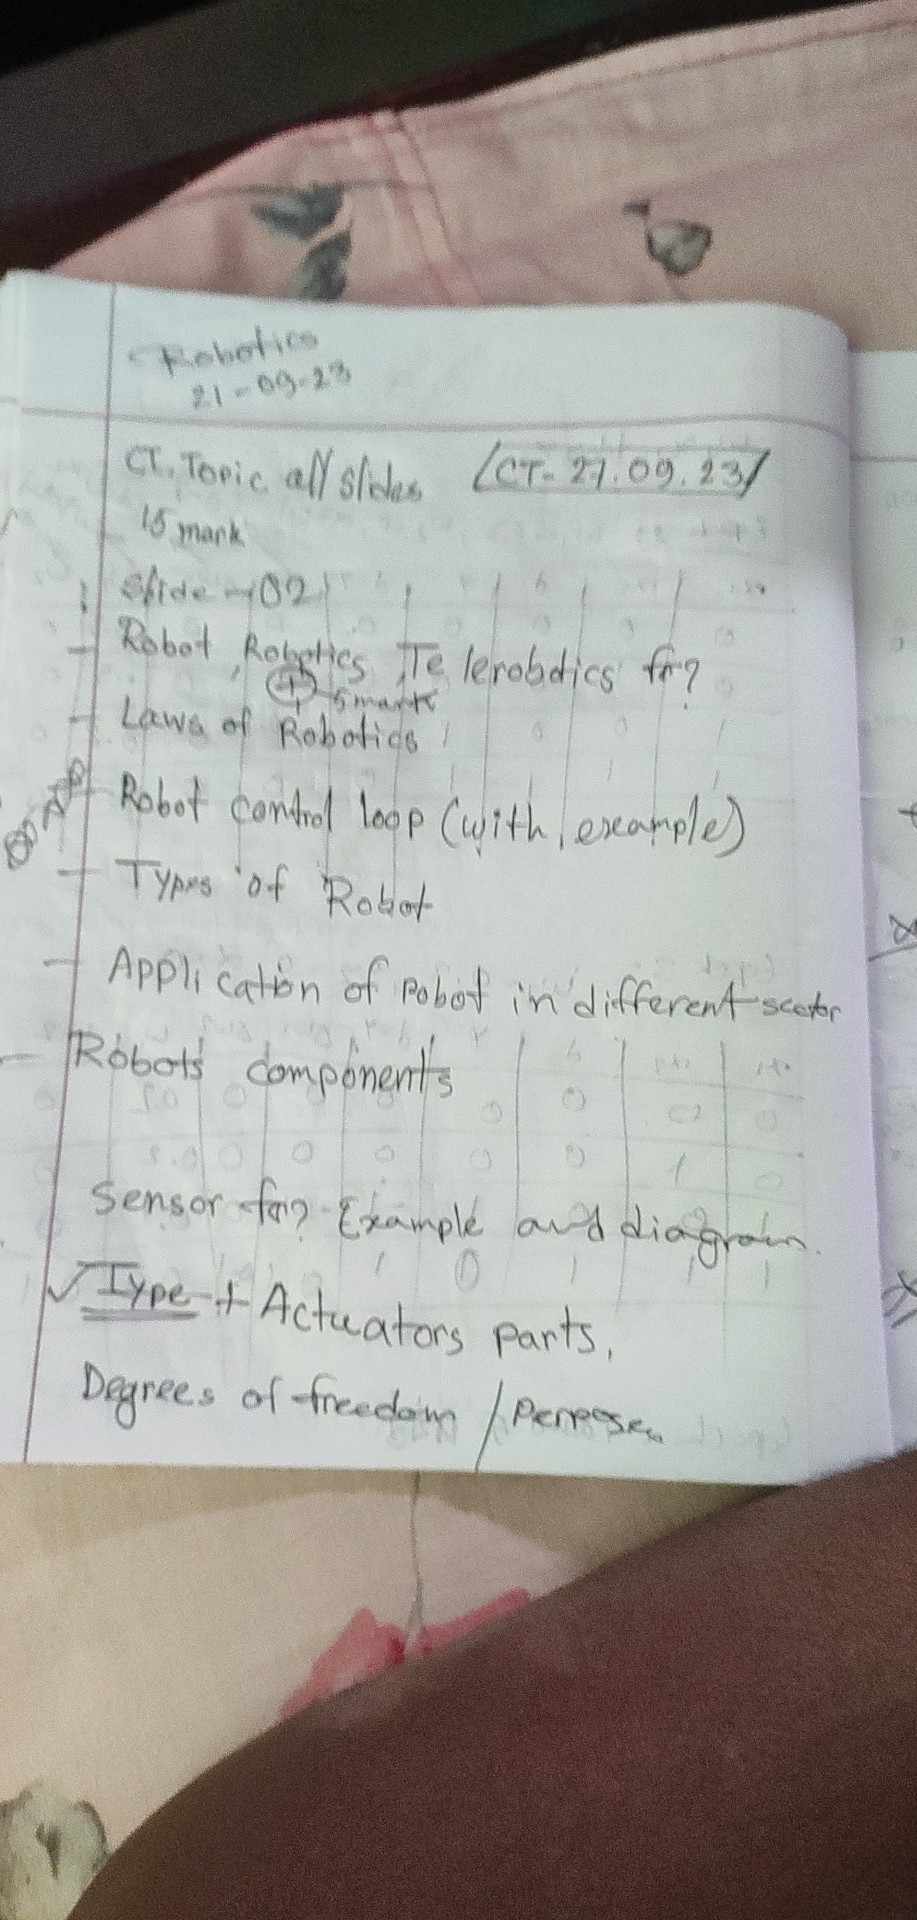 Robotics
21-09-23
CT. Topic all slides (CT- 21.09.23)
15 mark
Slide - 02
- Robot, Robotics, Telerobotics কি?
+ 5 mark
- Laws of Robotics
- Robot control loop (with, example)
- Types of Robot
- Application of Robot in different scetor
- Robots' components
Sensor কি? Example and diagram.
✓ Type + Actuators parts,
Degrees of freedom /